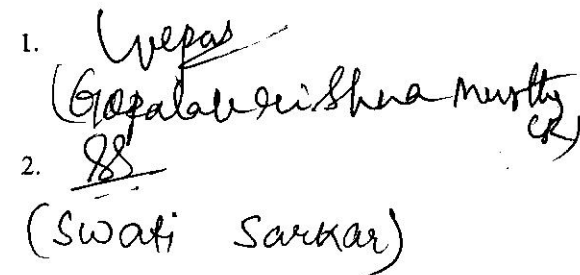 1.
(Gopalakrishna Murthy
CR)
2. SS
(Swati Sarkar)